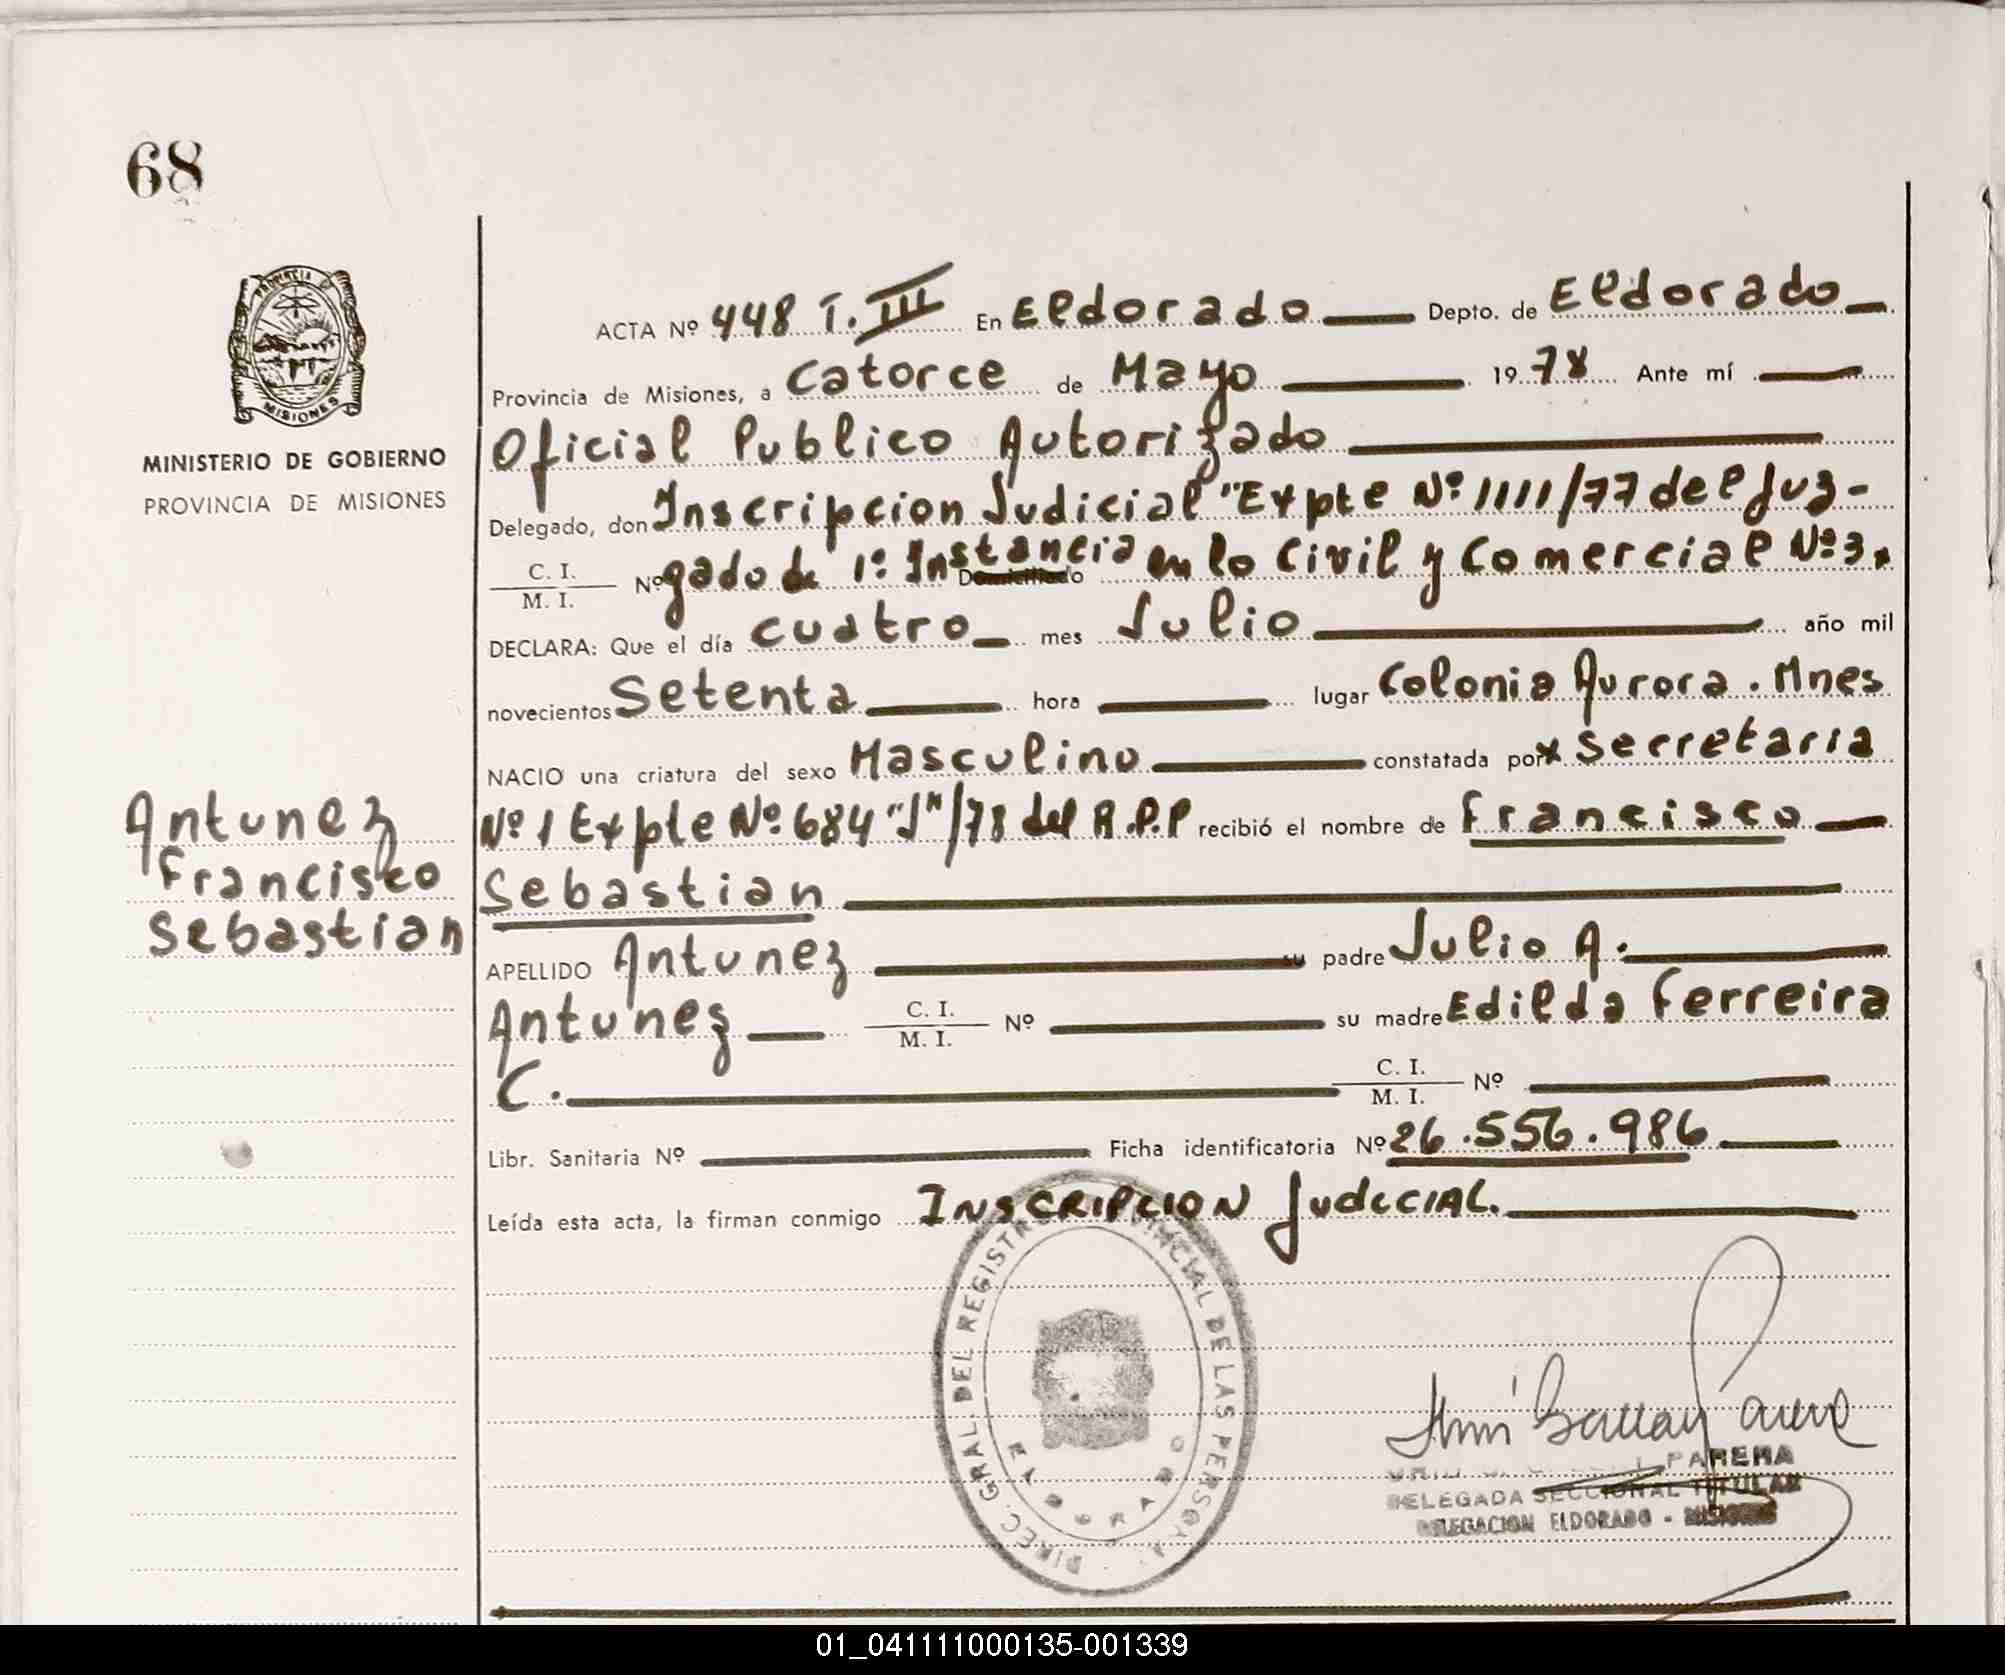 68
PROVINCIA
MISIONES
MINISTERIO DE GOBIERNO
PROVINCIA DE MISIONES
Antunez
Francisco
Sebastian
ACTA Nº 448 T. III En Eldorado Depto. de Eldorado
Provincia de Misiones, a Catorce de Mayo 1978 Ante mí
Oficial Publico Autorizado
Delegado, don Inscripcion Judicial "Expte Nº 1111/77 del Juz-
C. I.
M. I. Nº gado de 1º Instancia en lo Civil y Comercial Nº 3.
DECLARA: Que el día cuatro mes Julio año mil
novecientos Setenta hora lugar Colonia Aurora. Mnes
NACIO una criatura del sexo Masculino constatada por Secretaria
Nº 1 Expte Nº 684 "J"/78 del R.P.P recibió el nombre de Francisco
Sebastian
APELLIDO Antunez su padre Julio A.
Antunez C. I.
M. I. Nº su madre Edilda Ferreira
C. C. I.
M. I. Nº
Libr. Sanitaria Nº Ficha identificatoria Nº 26.556.986
Leída esta acta, la firman conmigo INSCRIPCION JUDICIAL.
DIREC. GRAL. DEL REGISTRO PROVINCIAL DE LAS PERSONAS
ELDORADO
PAREMA
DELEGADA SECCIONAL TITULAR
DELEGACION ELDORADO - MISIONES
01_041111000135-001339